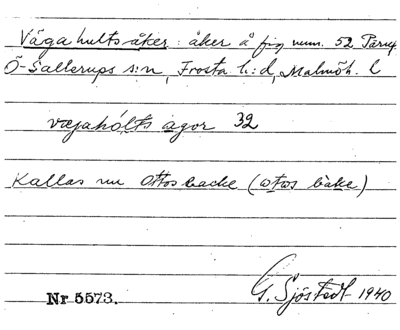 Vägahultsåker: åker å fig num. 52 Pärup
Ö-Sallerups s:n, Frosta h:d, Malmöh. l
vægahólts agor 32
Kallas nu Ottosbacke (otos bake)
Nr 5573. G. Sjöstedt 1940